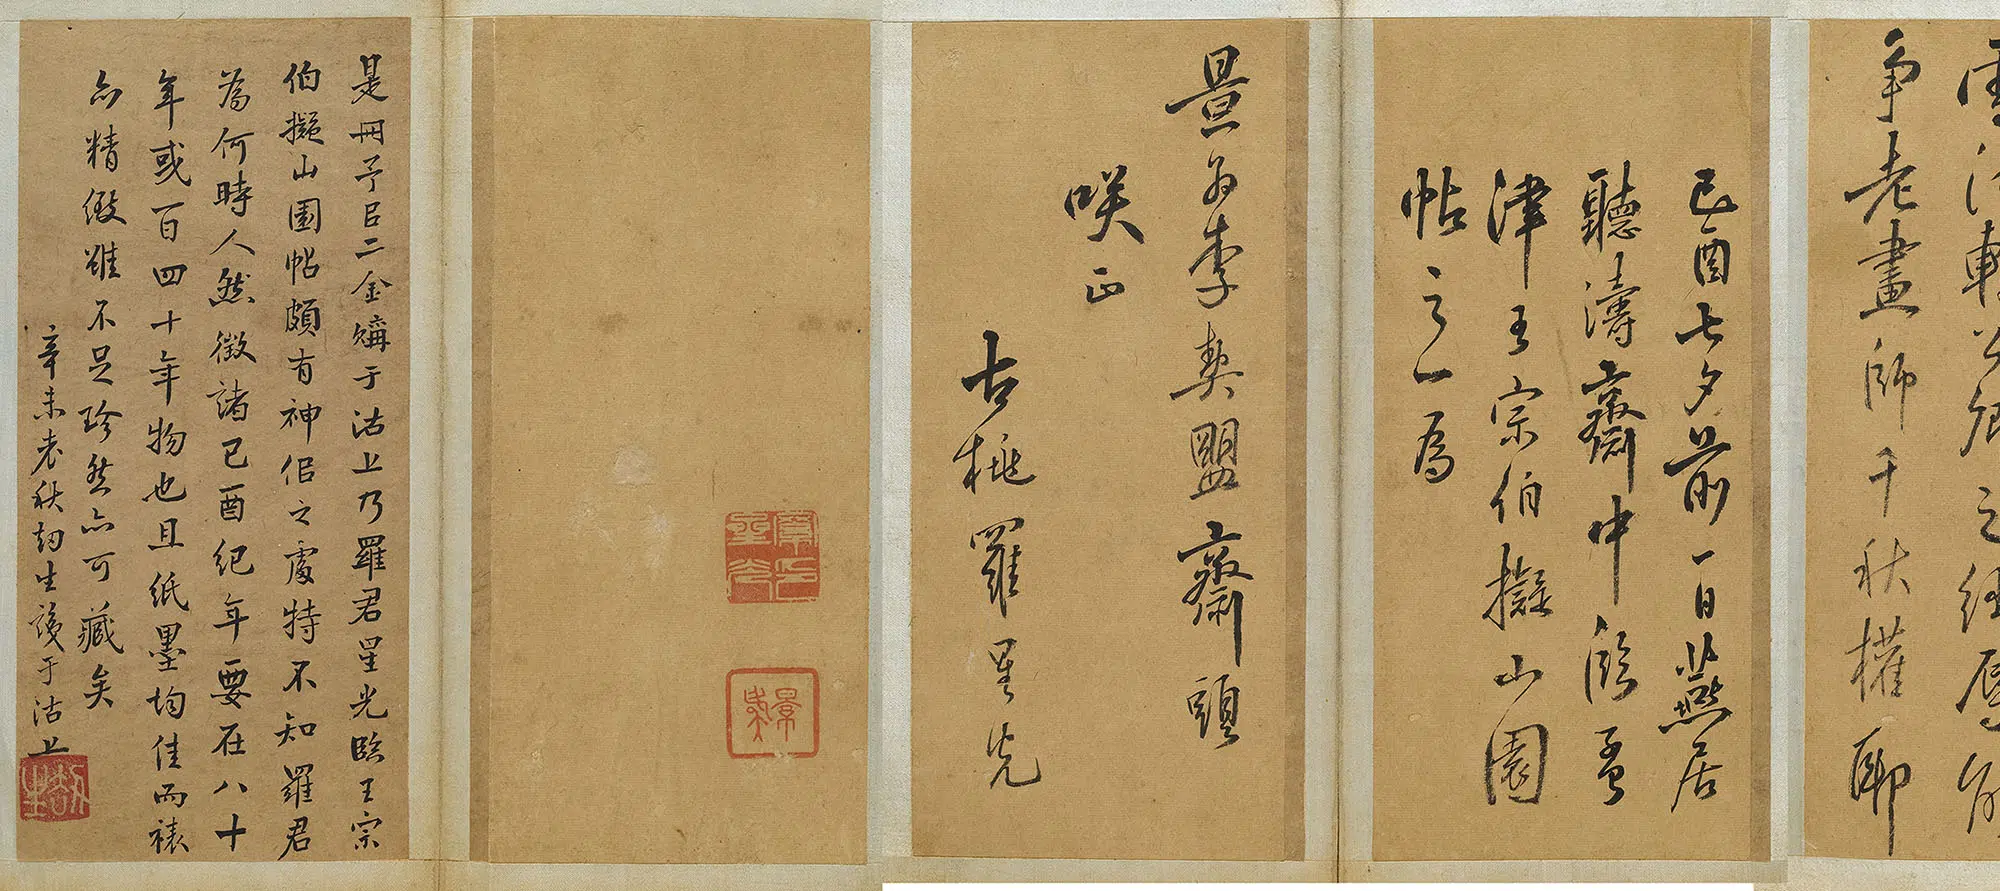 爭老畫師千秋權耶
己酉七夕前一日燕居
聽濤齋中臨孟
津王宗伯擬山園
帖之一為
景為李契盟齋頭
咲正
古桃羅星光
是冊予以二金購于沽上乃羅君星光臨王宗
伯擬山園帖頗有神似之處特不知羅君
為何時人然徵諸己酉紀年要在八十
年或百四十年物也且紙墨均佳而裱
亦精緻雖不足珍然亦可藏矣
辛未老秋劫生識于沽上